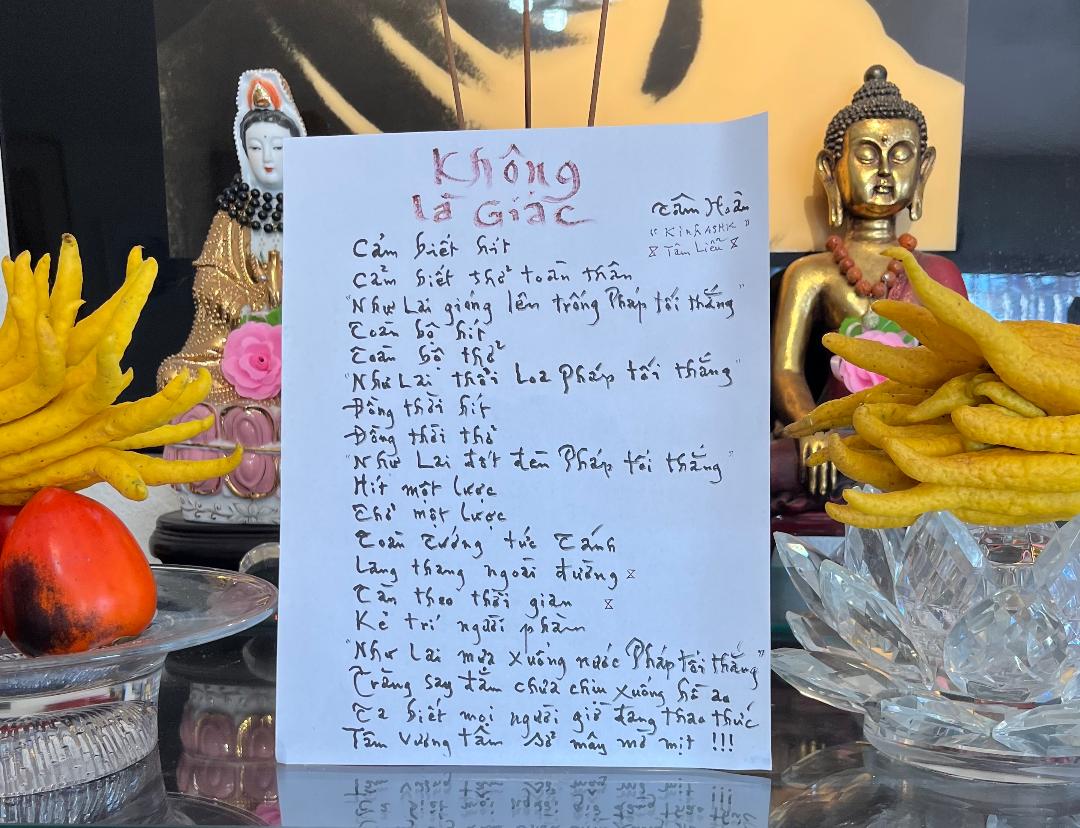 Không
là Giác
Tâm Hoàn
"KinhASHK"
Tâm Liễu
Cảm biết hít
Cảm biết thở toàn thân
"Như Lai gióng lên trống Pháp tối thắng"
Toàn bộ hít
Toàn bộ thở
"Như Lai thổi Loa Pháp tối thắng"
Đồng thời hít
Đồng thời thở
"Như Lai đốt đèn Pháp tối thắng"
Hít một lược
Thở một lược
Toàn Tướng tức Tánh
Lang thang ngoài đường
Tần theo thời gian
Kẻ trí người phàm
"Như Lai mưa xuống nước Pháp tối thắng"
Trăng say đắm chưa chịu xuống hồ ao
Ta biết mọi người giờ đang thao thức
Tâm Vương Tâm Sở mây mờ mịt !!!